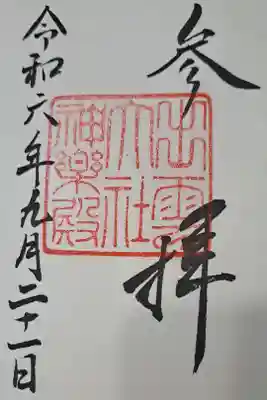 参拝
出雲
大社
神楽殿
令和六年九月二十一日